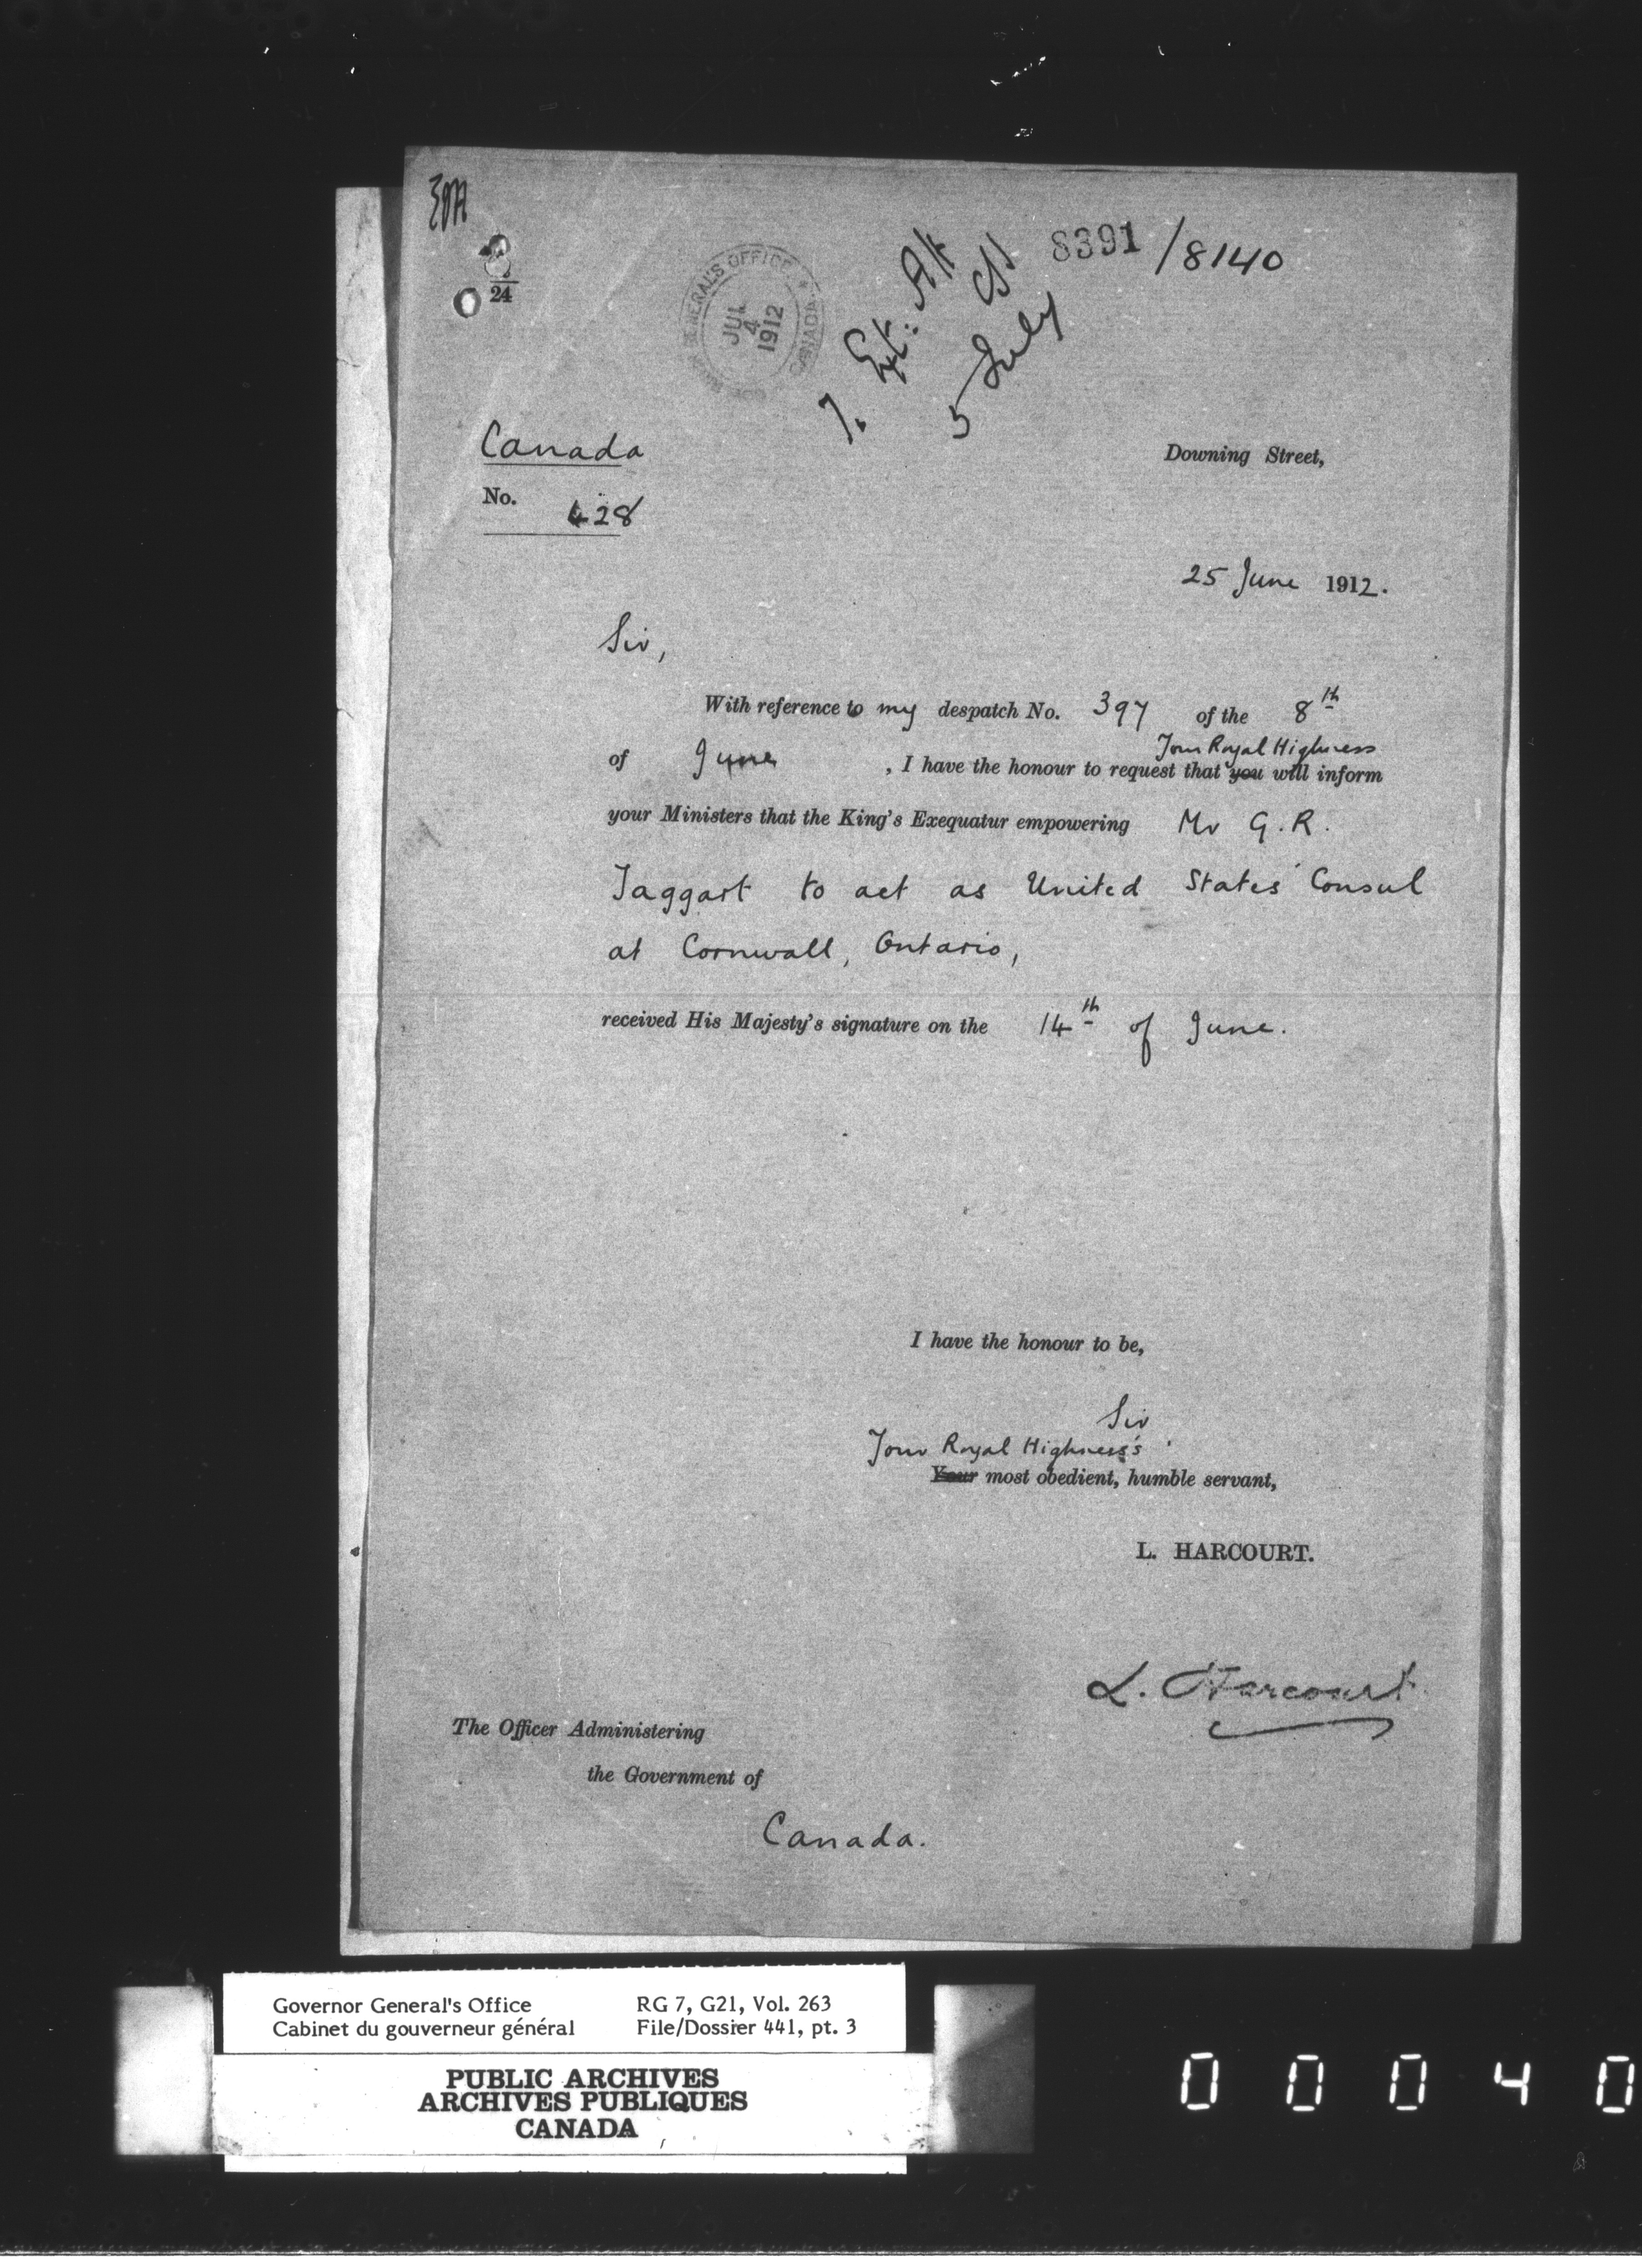 24
GENERAL'S OFFICE
CANADA
JUL
4
1912
8391 / 8140
5 July
Canada
Downing Street,
No. 428
25 June 1912.
Sir,
With reference to my despatch No. 397 of the 8th
Your Royal Highness
of June , I have the honour to request that you will inform
your Ministers that the King's Exequatur empowering Mr G. R.
Taggart to act as United States' Consul
at Cornwall, Ontario,
received His Majesty's signature on the 14th of June.
I have the honour to be,
Sir
Your Royal Highness's
Your most obedient, humble servant,
L. HARCOURT.
L. Harcourt.
The Officer Administering
the Government of
Canada.
Governor General's Office RG 7, G21, Vol. 263
Cabinet du gouverneur général File/Dossier 441, pt. 3
PUBLIC ARCHIVES
ARCHIVES PUBLIQUES
CANADA
0 0 0 4 0